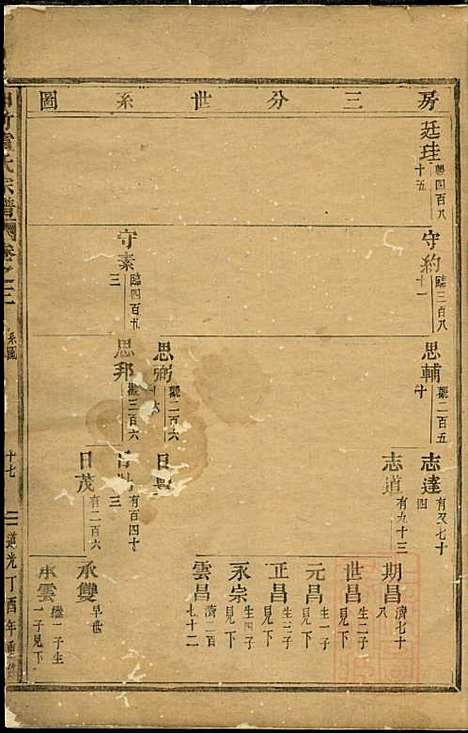 房三分世系圖
廷珪
四百八
十五
守約
臨三百八
十一
守素
臨四百九
三
思輔
觀二百五
十
思弼
觀二百六
思邦
觀三百六
志達
有又七十
四
志道
有九十三
日
日
有百四十
三
日茂
有二百六
期昌
濟七十
世昌
生二子
見下
元昌
生一子
見下
正昌
生三子
見下
永宗
生四子
見下
雲昌
濟二百
七十二
承雙
早世
承雲
繼子生
一子見下
氏宗譜
卷之三
系圖
十七
道光丁酉年重修